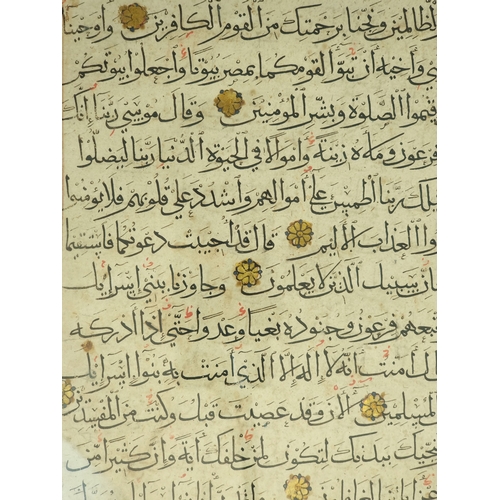 للظالمين ونجنا برحمتك من القوم الكافرين واوحينا
واخيه أن تبوا لقومكما بمصر بيوتا واجعلوا بيوتكم
قيموا الصلوة وبشر المؤمنين وقال موسى ربنا انك
فرعون وملاه زينة واموالا في الحيوة الدنيا ربنا ليضلوا
ربنا اطمس على أموالهم واشدد على قلوبهم فلا يؤمنوا
وا العذاب الاليم قال قد اجيبت دعوتكما فاستقيما
سبيل الذين لا يعلمون وجاوزنا ببني اسرايل
تبعهم فرعون وجنوده بغيا وعدوا حتى إذا أدركه
ل امنت أنه لا اله الا الذي امنت به بنوا اسرايل
المسلمين الان وقد عصيت قبل وكنت من المفسدين
نجيك ببدنك لتكون لمن خلفك آية وإن كثيرا من